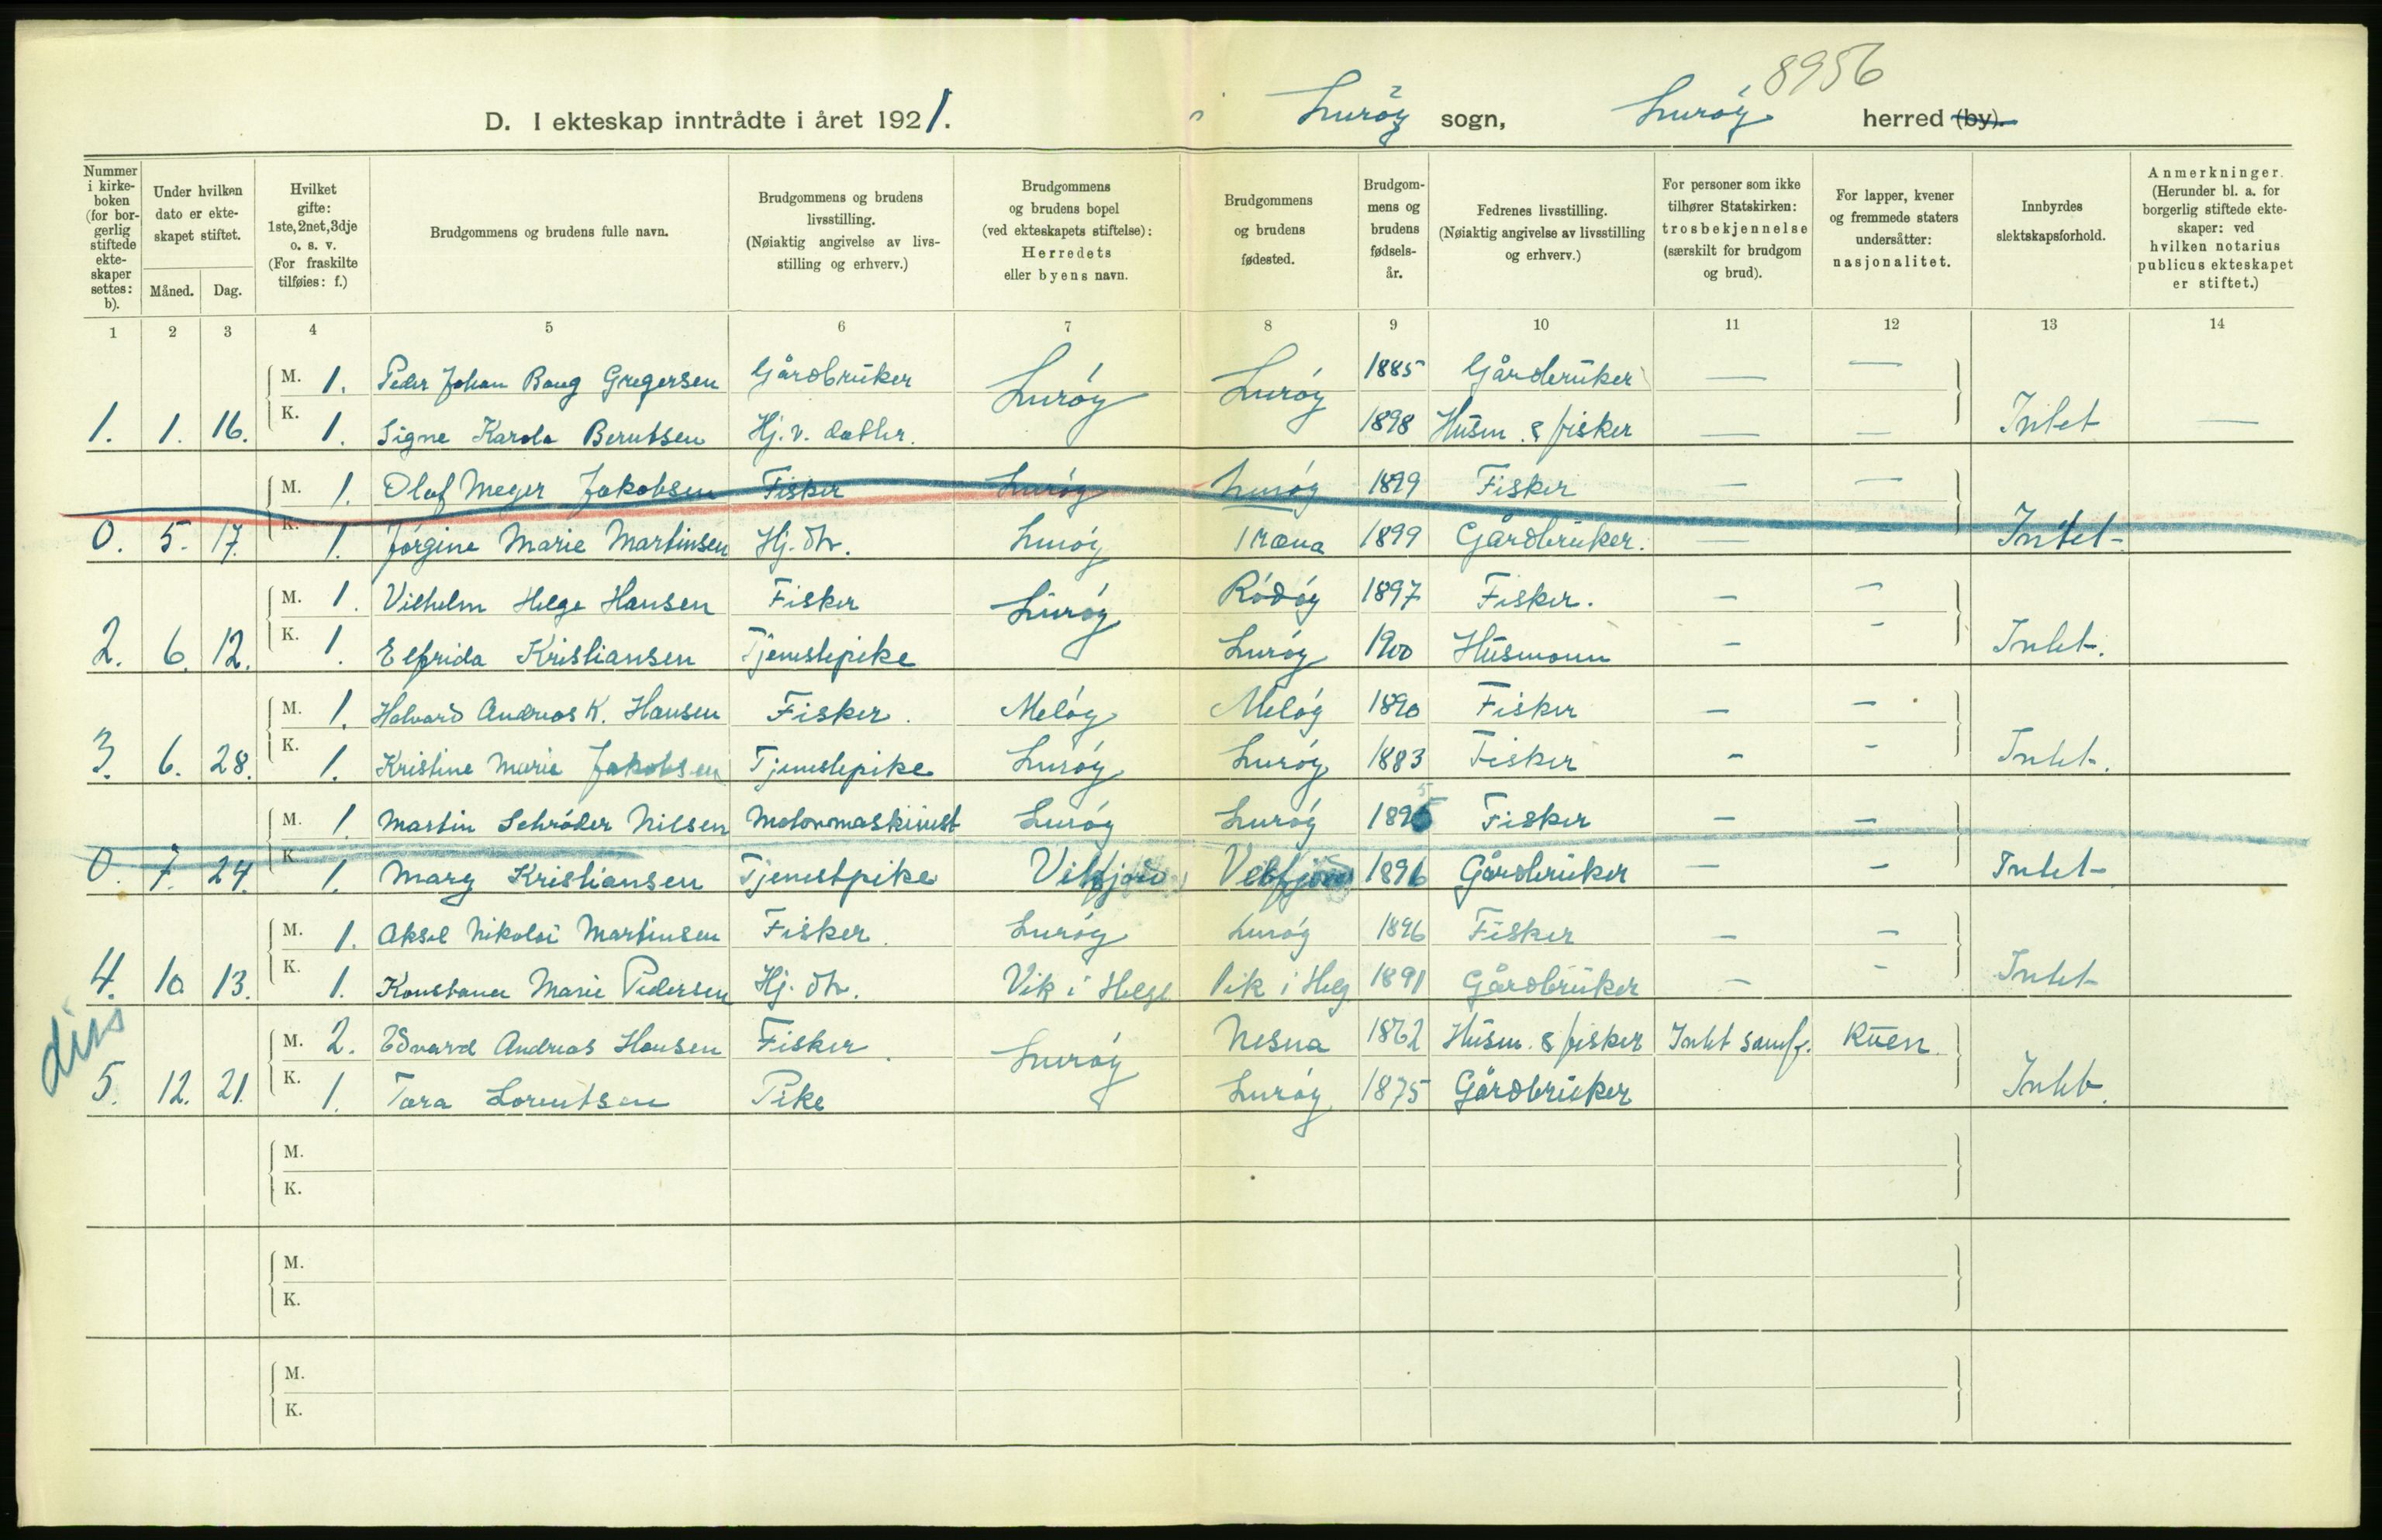 8956
D. I ekteskap inntrådte i året 1921. i Lurøy sogn, Lurøy herred (by).
Nummer i kirkeboken (for borgerlig stiftede ekteskaper settes: b).
Under hvilken dato er ekteskapet stiftet.
Måned. Dag.
Hvilket gifte: 1ste, 2net, 3dje o. s. v. (For fraskilte tilføies: f.)
Brudgommens og brudens fulle navn.
Brudgommens og brudens livsstilling. (Nøiaktig angivelse av livsstilling og erhverv.)
Brudgommens og brudens bopel (ved ekteskapets stiftelse): Herredets eller byens navn.
Brudgommens og brudens fødested.
Brudgommens og brudens fødselsår.
Fedrenes livsstilling. (Nøiaktig angivelse av livsstilling og erhverv.)
For personer som ikke tilhører Statskirken: trosbekjennelse (særskilt for brudgom og brud).
For lapper, kvener og fremmede staters undersåtter: nasjonalitet.
Innbyrdes slektskapsforhold.
Anmerkninger. (Herunder bl. a. for borgerlig stiftede ekteskaper: ved hvilken notarius publicus ekteskapet er stiftet.)
1 2 3 4 5 6 7 8 9 10 11 12 13 14
M. 1. Peder Johan Baug Gregersen Gårdbruker Lurøy Lurøy 1885 Gårdbruker — —
1. 1. 16. K. 1. Signe Karola Berntsen Hj. v. datter. 1898 Husm. & fisker — — Intet —
M. 1. Olaf Meyer Jakobsen Fisker Lurøy Lurøy 1899 Fisker — —
0. 5. 17. K. 1. Jørgine Marie Martinsen Hj. dtr. Lurøy Træna 1899 Gårdbruker. — — Intet
M. 1. Vilhelm Helge Hansen Fisker Lurøy Rødøy 1897 Fisker. — —
2. 6. 12. K. 1. Elfrida Kristiansen Tjenestepike Lurøy 1900 Husmann — — Intet.
M. 1. Halvard Andreas K. Hansen Fisker. Meløy Meløy 1890 Fisker — —
3. 6. 28. K. 1. Kristine Marie Jakobsen Tjenestepike Lurøy Lurøy 1883 Fisker — — Intet.
M. 1. Martin Schrøder Nilsen Motormaskinist Lurøy Lurøy 1895 Fisker — —
0. 7. 24. K. 1. Mary Kristiansen Tjenestpike Velfjord Velfjord 1896 Gårdbruker — — Intet
M. 1. Aksel Nikolai Martinsen Fisker. Lurøy Lurøy 1896 Fisker — —
4. 10 13. K. 1. Konstanse Marie Pedersen Hj. dtr. Vik i Helgl Vik i Helg 1891 Gårdbruker — — Intet
diss
M. 2. Edvard Andreas Hansen Fisker. Lurøy Nesna 1862 Husm. & fisker Intet samf. Kven.
5. 12. 21. K. 1. Tora Lorentsen Pike Lurøy 1875 Gårdbruker Intet.
M.
K.
M.
K.
M.
K.